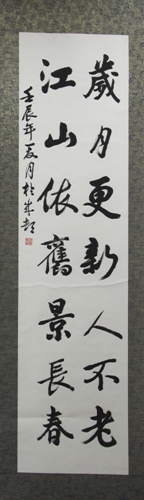 歲月更新人不老
江山依舊景長春
壬辰年夏月於成都